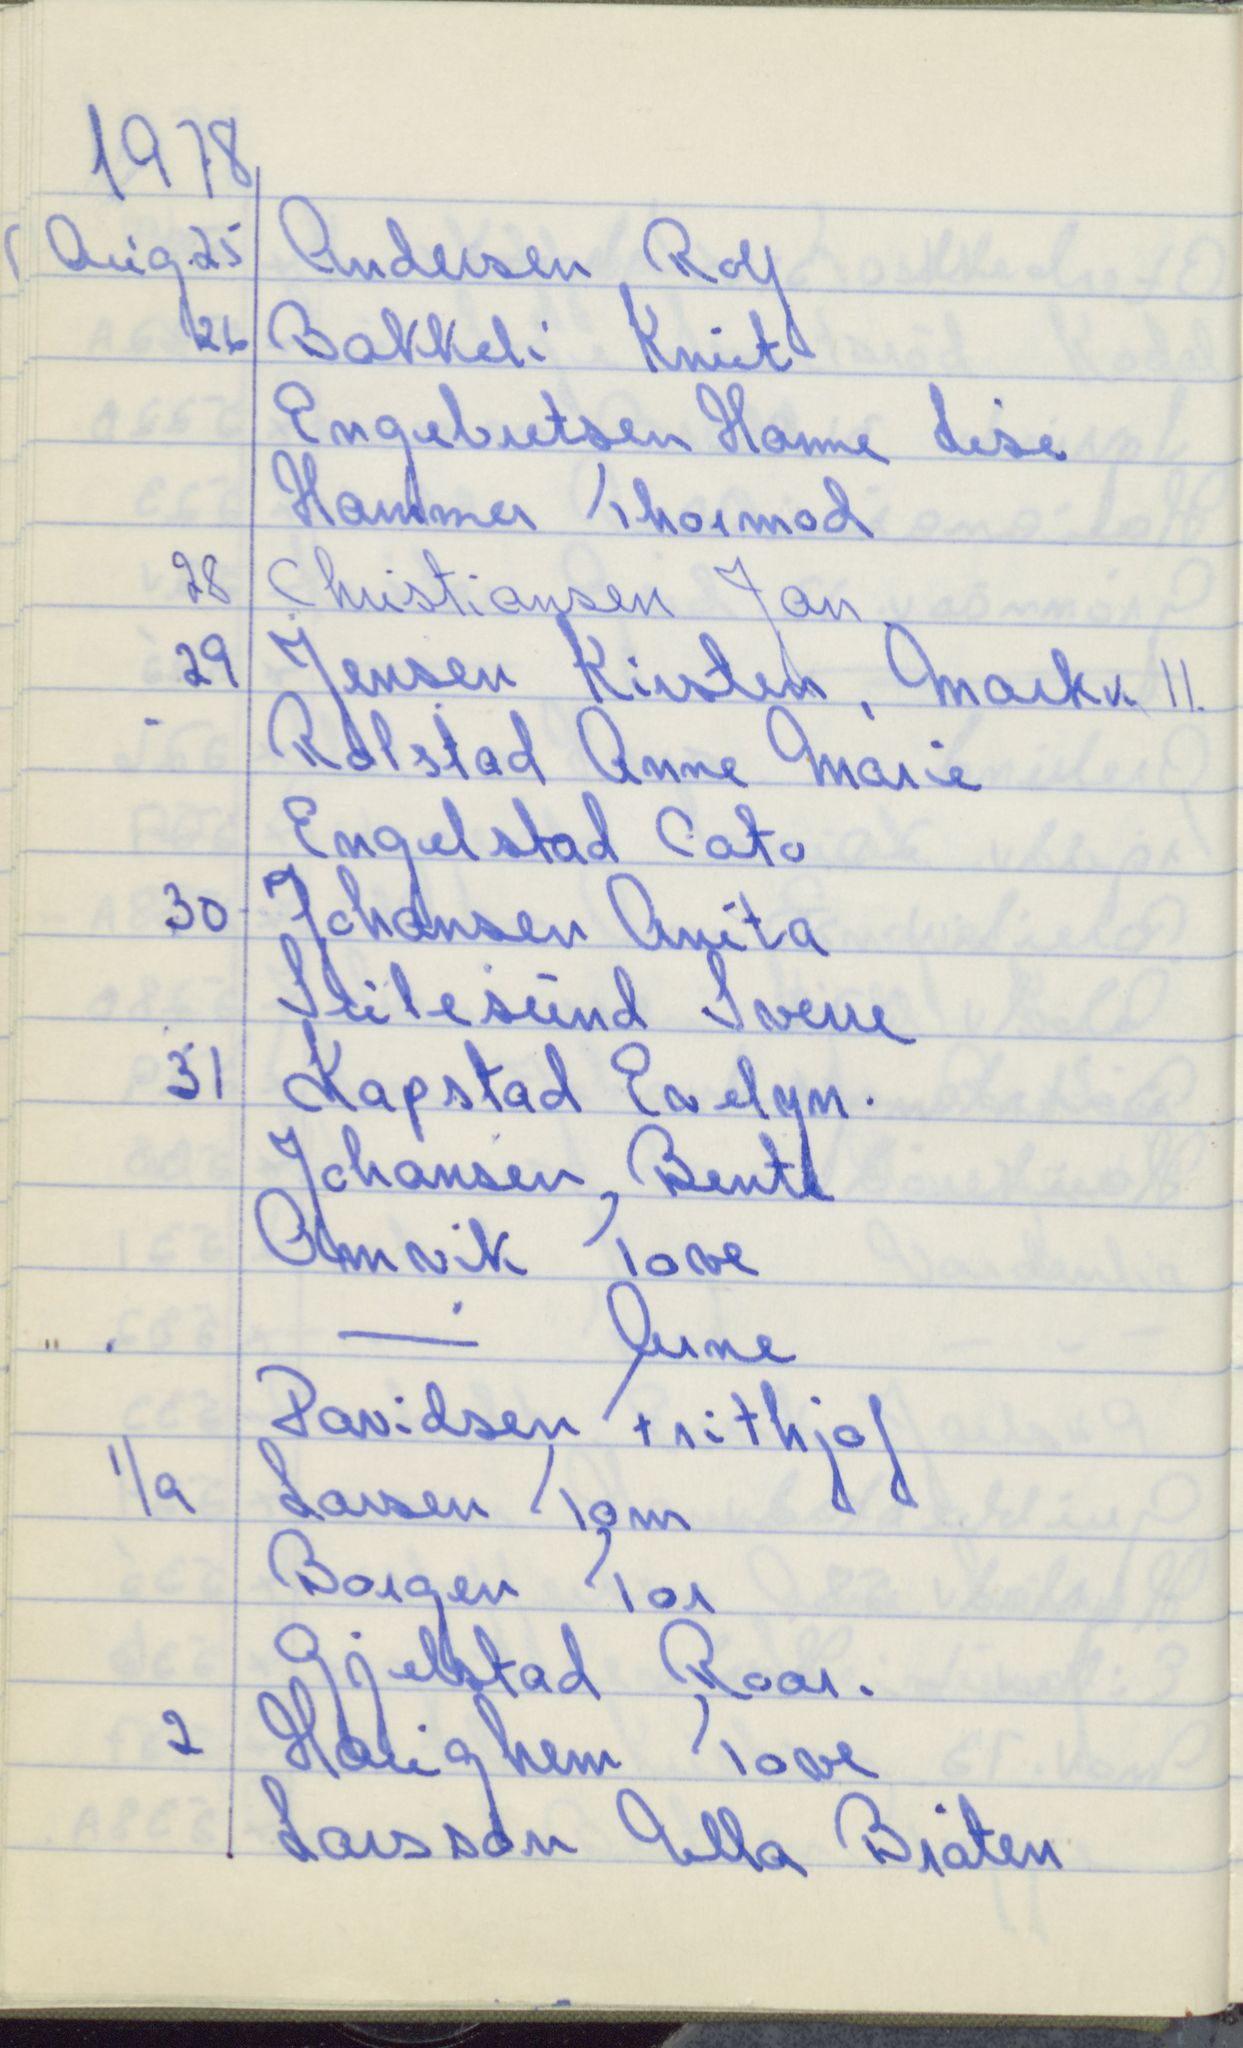 1978
Aug. 25 Andersen Rolf
26 Bakkeli Knut
Engebretsen Hanne Lise
Hammer Thormod
28 Christiansen Jan
29 Jensen Kirsten, Markv. 11.
Rolstad Anne Marie
Engelstad Cato
30 Johansen Anita
Sverre
31 Kapstad Evelyn.
Johansen, Bente
Amvik Tove
— Arne
Davidsen Frithjof
1/9 Larsen Tom
Borgen Tor
Gjelstad Roar.
2 Haughem Tove
Larsson Ella Bråten